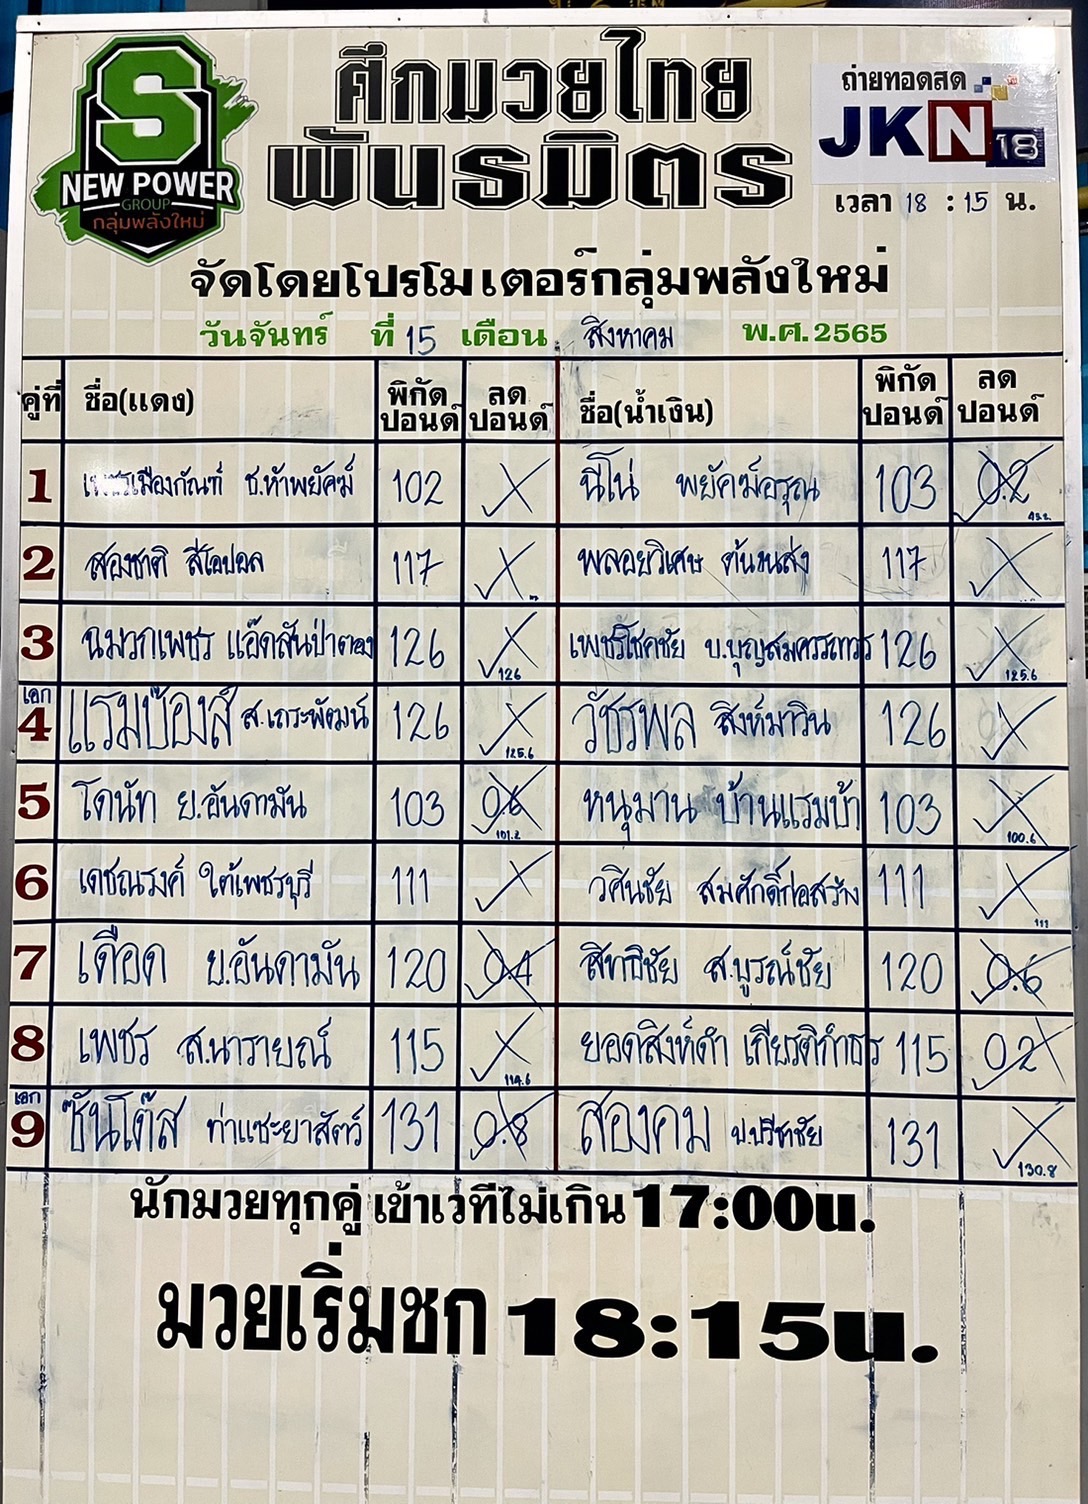 S
NEW POWER
GROUP
กลุ่มพลังใหม่
ศึกมวยไทย
พันธมิตร
ถ่ายทอดสด
JKN18
เวลา 18 : 15 น.
จัดโดยโปรโมเตอร์กลุ่มพลังใหม่
วันจันทร์ ที่ 15 เดือน สิงหาคม พ.ศ.2565
คู่ที่ ชื่อ(แดง) พิกัดปอนด์ ลดปอนด์ ชื่อ(น้ำเงิน) พิกัดปอนด์ ลดปอนด์
1 เพชรเมืองกัณฑ์ ช.ห้าพยัคฆ์ 102 นีโน่ พยัคฆ์อรุณ 103 0.2
2 สองชาติ สีโอปอล 117 พลอยวิเศษ ต้นขนส่ง 117
3 ฉมวกเพชร แอ๊ดสันป่าตอง 126 126 เพชรโชคชัย บ.บุญสมควรถาวร 126 125.6
เอก
4 แรมบ๊องส์ ส.เถระพัฒน์ 126 125.6 วัชรพล สิงห์มาวิน 126
5 โดนัท ย.อันดามัน 103 0.6 101.2 หนุมาน บ้านแรมบ้า 103 100.6
6 เดชณรงค์ ใต้เพชรบุรี 111 วศินชัย สมศักดิ์ก่อสร้าง 111 111
7 เดือด ย.อันดามัน 120 0.4 สิทธิชัย ส.บูรณ์ชัย 120 0.6
8 เพชร ส.นารายณ์ 115 114.6 ยอดสิงห์ดำ เกียรติกำธร 115 0.2
เอก
9 ซันโต๊ส ท่าแซะยาสัตว์ 131 0.8 สองคม บ.ปรีชาชัย 131 130.8
นักมวยทุกคู่ เข้าเวทีไม่เกิน 17:00น.
มวยเริ่มชก 18:15น.